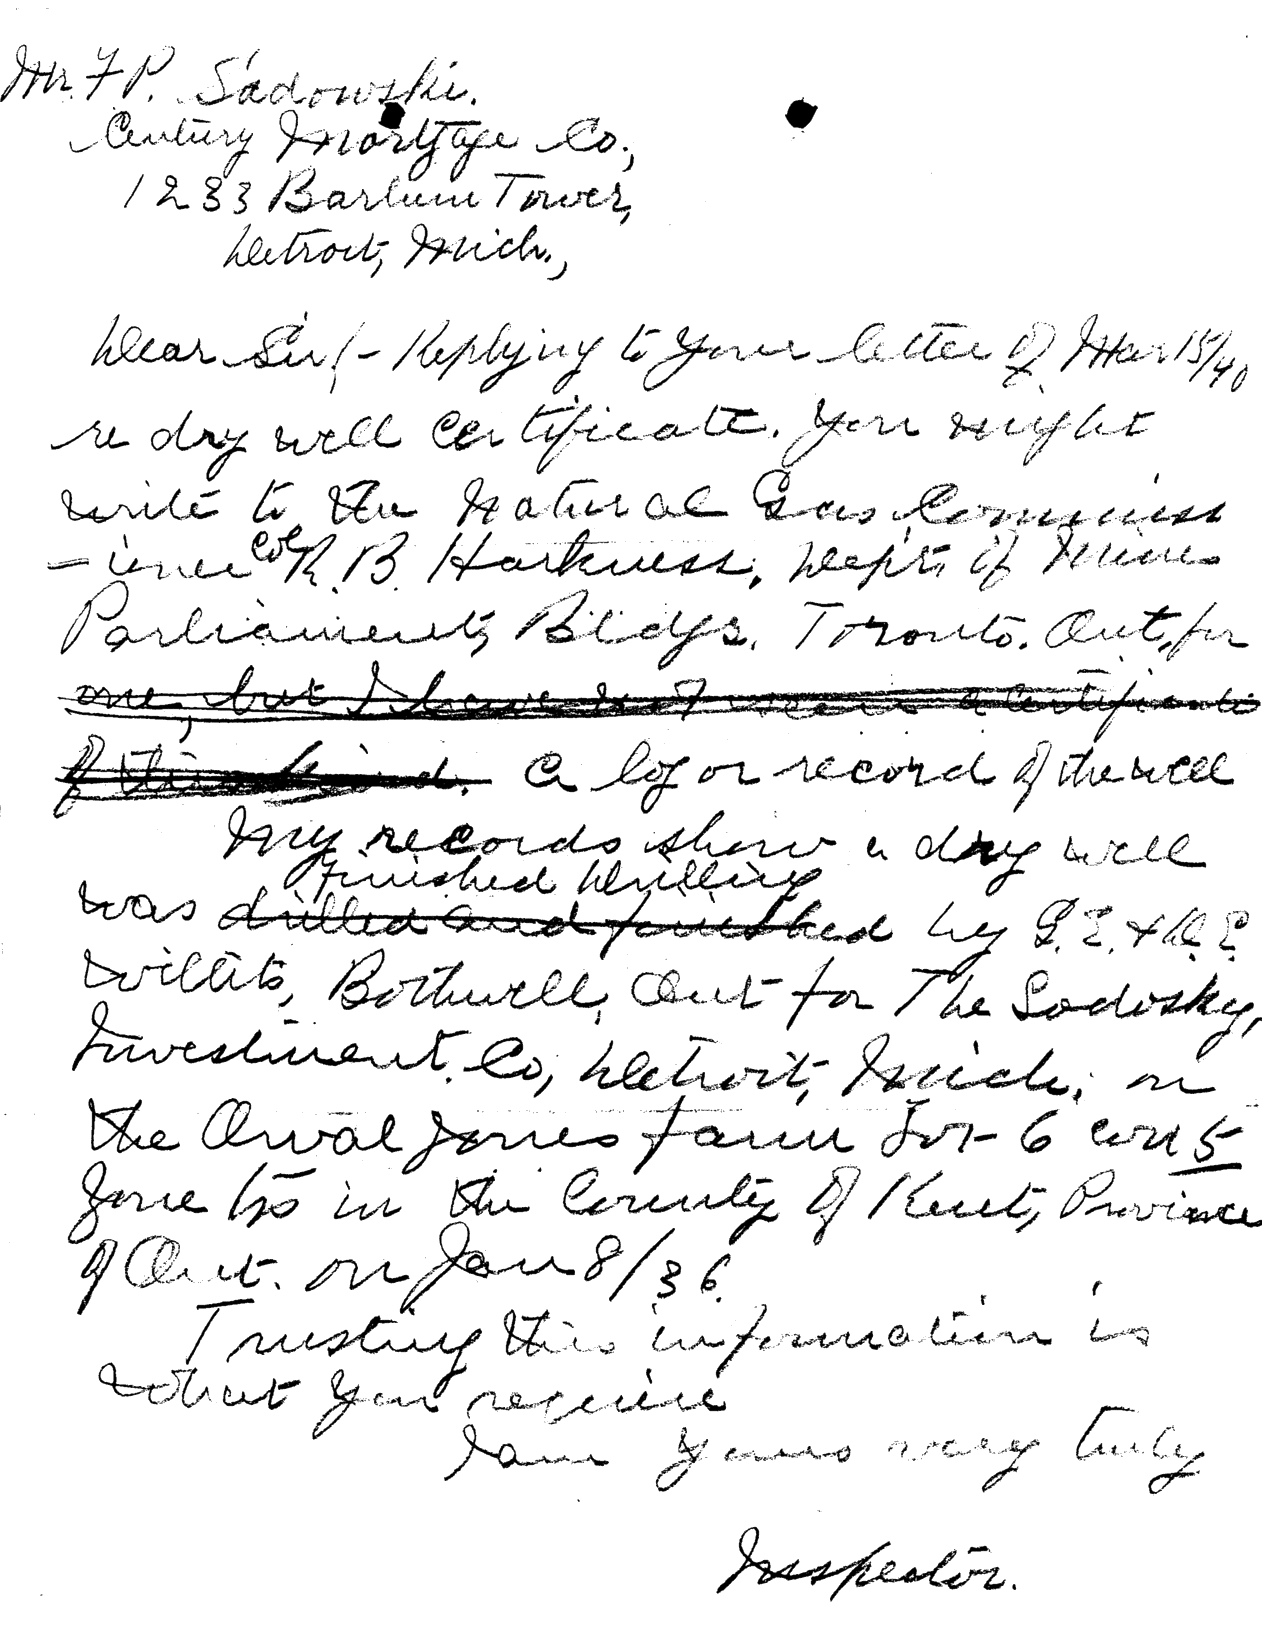 Mr. F P. Sadowski.
Century Mortgage Co.,
1233 Barlum Tower,
Detroit, Mich.,
Dear Sir/- Replying to your letter of Mar 15/40
re dry well certificate. You might
write to the Natural Gas Commiss
-ioner Col R. B. Harkness, Dept. of Mines
Parliament, Bldgs. Toronto. Ont, for
one, but I have not seen a certificate
of this kind. a log or record of the well
My records show a dry well
Finished Drilling
was drilled and finished by G. E. & D. E.
Willits, Bothwell, Ont for The Sadosky,
Investment. Co, Detroit, Mich, on
the Orval Jones farm Lot 6 con 5
Zone Tp in the County of Kent, Province
of Ont. on Jan 8/36.
Trusting this information is
what you require
I am Yours very truly
Inspector.